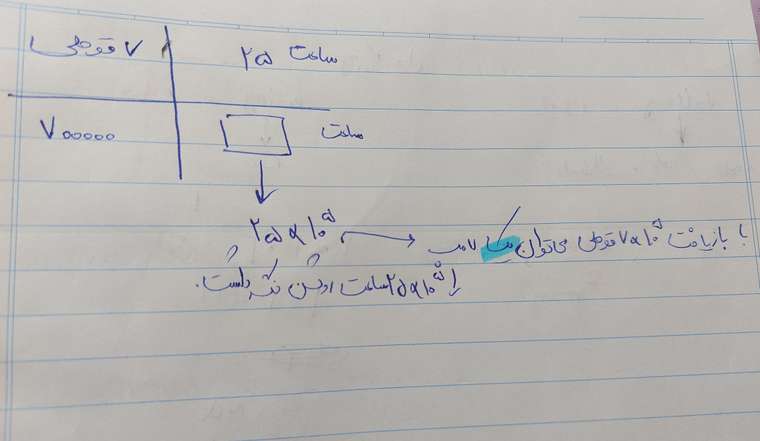 ۷ قوطی ۲۵ ساعت
۷۰۰۰۰۰ ساعت
۲۵×۱۰^۵
با بازیافت ۷×۱۰^۵ قوطی می‌توان یک لامپ
را ۲۵×۱۰^۵ ساعت روشن نگه داشت.